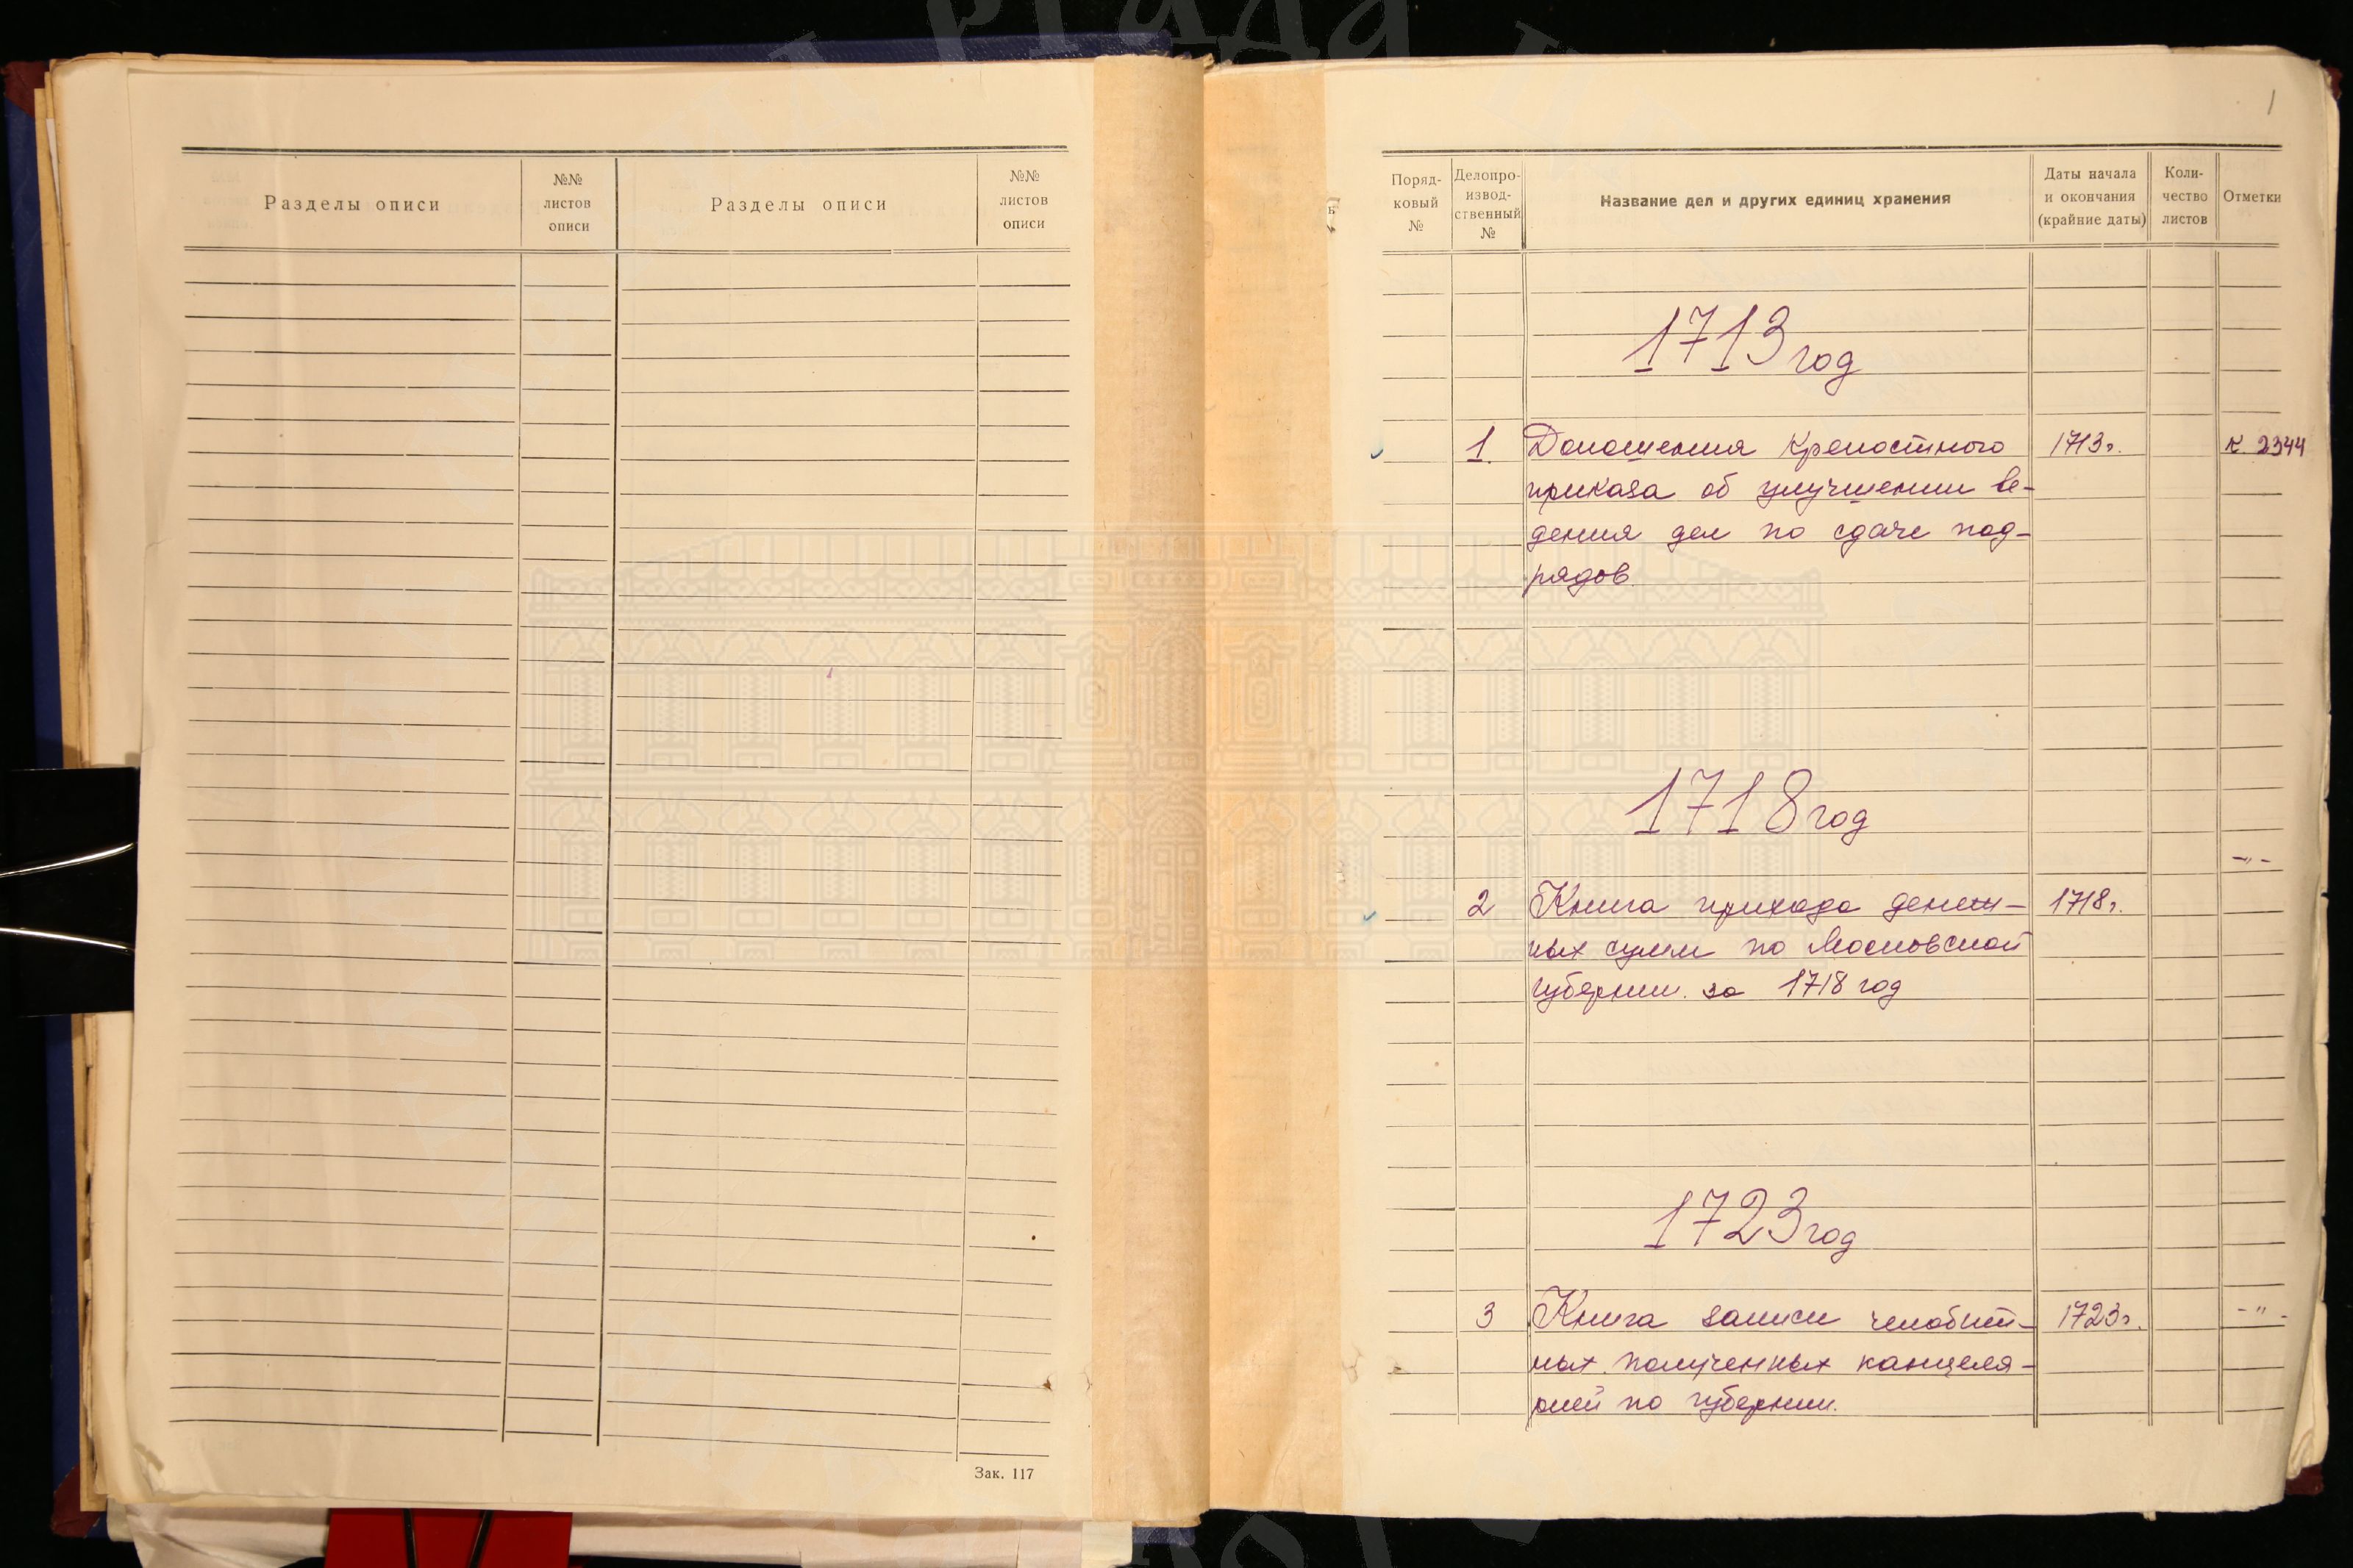 Разделы описи
№№
листов
описи
Разделы описи
№№
листов
описи
Зак. 117
1
Поряд-
ковый
№
Делопро-
извод-
ственный
№
Название дел и других единиц хранения
Даты начала
и окончания
(крайние даты)
Коли-
чество
листов
Отметки
1713 год
1. Доношения Крепостного 1713 г. к. 2344
приказа об улучшении ве-
дения дел по сдаче под-
рядов
1718 год
-"-
2 Книга прихода денеж- 1718 г.
ных сумм по Московской
губернии за 1718 год
1723 год
3 Книга записи челобит- 1723 г. -"-
ных полученных канцеля-
рией по губернии.